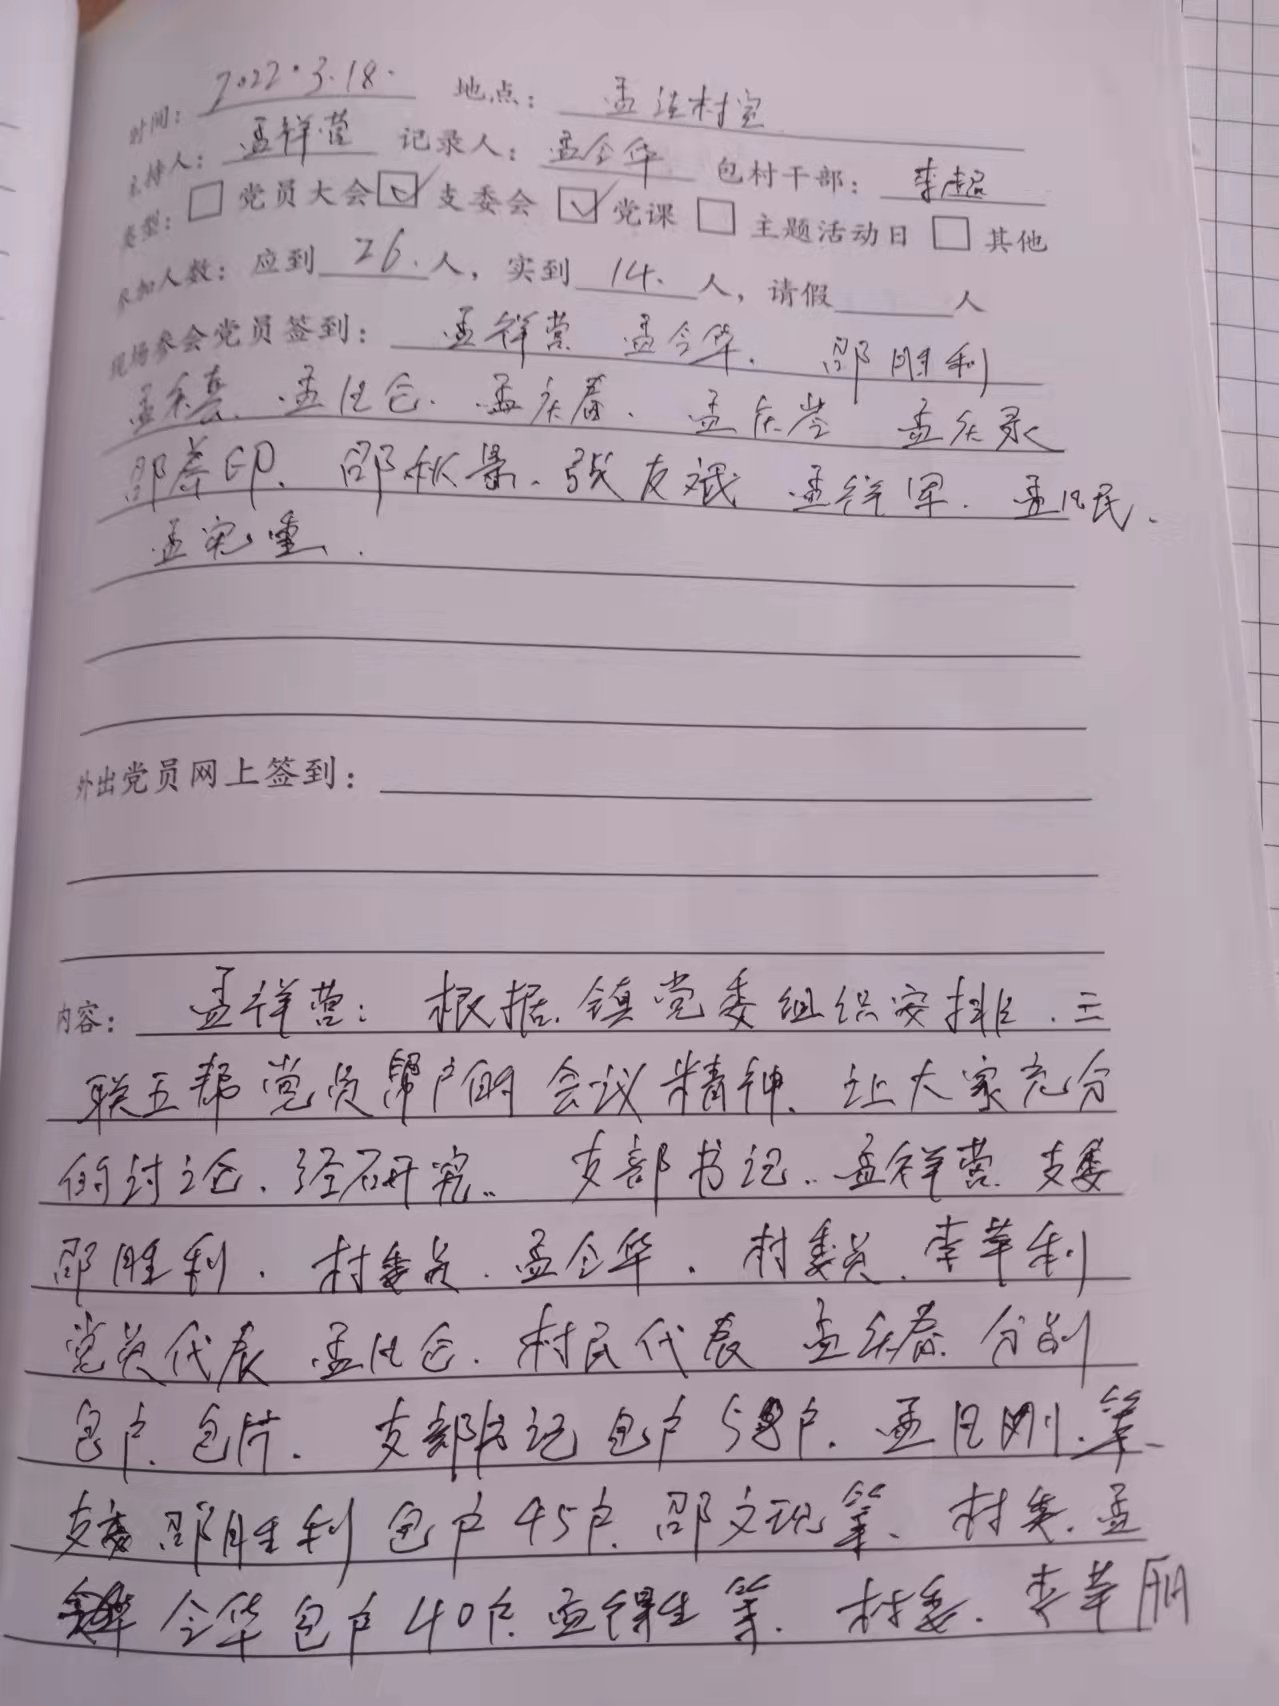 时间：2022.3.18. 地点：孟洼村室
主持人：孟祥营 记录人：孟令华 包村干部：李超
类型：□党员大会☑支委会☑党课□主题活动日□其他
参加人数：应到26.人，实到14.人，请假 人
现场参会党员签到：孟祥营 孟令华. 邵胜利
孟 孟凡仓. 孟庆春. 孟庆 孟庆录
邵 印. 邵秋景. 张友斌 孟祥军. 孟凡民.
孟宪
外出党员网上签到：
内容：孟祥营：根据镇党委组织安排.三
联五帮党员帮户的会议精神.让大家充分
的讨论.经研究.. 支部书记..孟祥营.支委
邵胜利.村委员.孟令华.村委员.李苹利
党员代表 孟凡仓.村民代表 孟庆春.分别
包户.包片.支部书记包户5 户.孟凡刚.等.
支委邵胜利包户45户.邵文现等.村委.孟
令华包户40户.孟 生等.村委.李苹丽